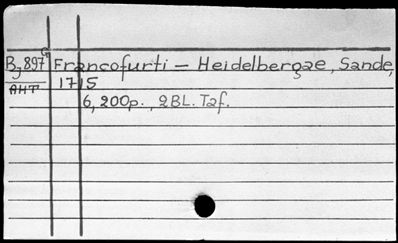 Bj897 Francofurti – Heidelbergae, Sande,
АНТ 1715
6, 200p., 2BL. Taf.